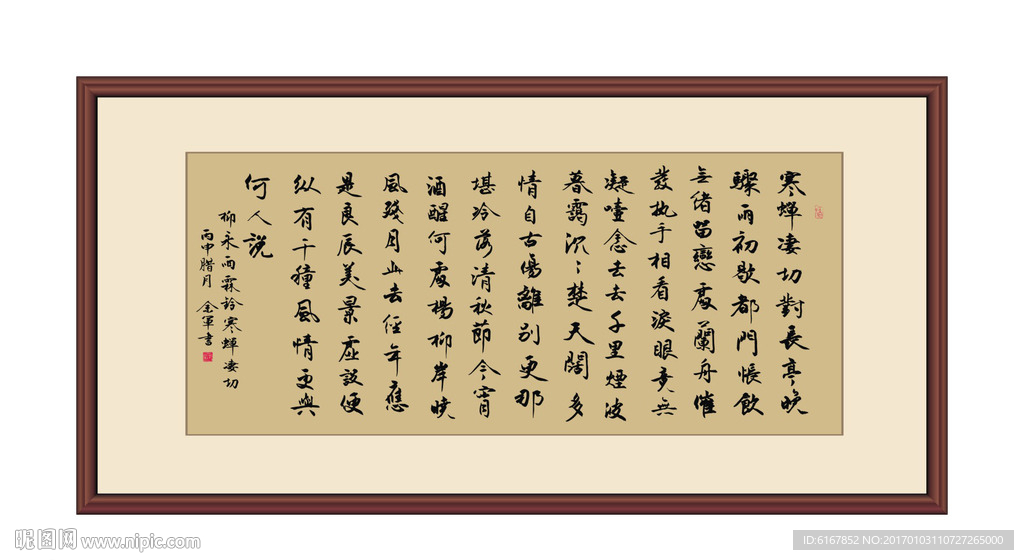 寒蟬凄切對長亭晚
驟雨初歇都門悵飲
無緒留戀處蘭舟催
發執手相看淚眼竟無
凝噎念去去千里煙波
暮靄沉〻楚天闊多
情自古傷離別更那
堪冷落清秋節今宵
酒醒何處楊柳岸曉
風殘月此去經年應
是良辰美景虛設便
縱有千種風情更與
何人説
柳永雨霖鈴寒蟬凄切
丙申腊月 軍書
昵图网 www.nipic.com
ID:6167852 NO:20170103110727265000